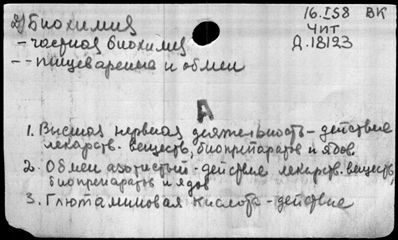 16.I58 ВК
2) Биохимия
Чит
- частная биохимия
Д.18123
-- пищеварения и обмен
А
1. Высшая нервная деятельность - действие
лекарств. веществ, биопрепаратов и ядов
2. Обмен азотистый - действие лекарств. веществ,
биопрепаратов и ядов
3. Глютаминовая кислота - действие